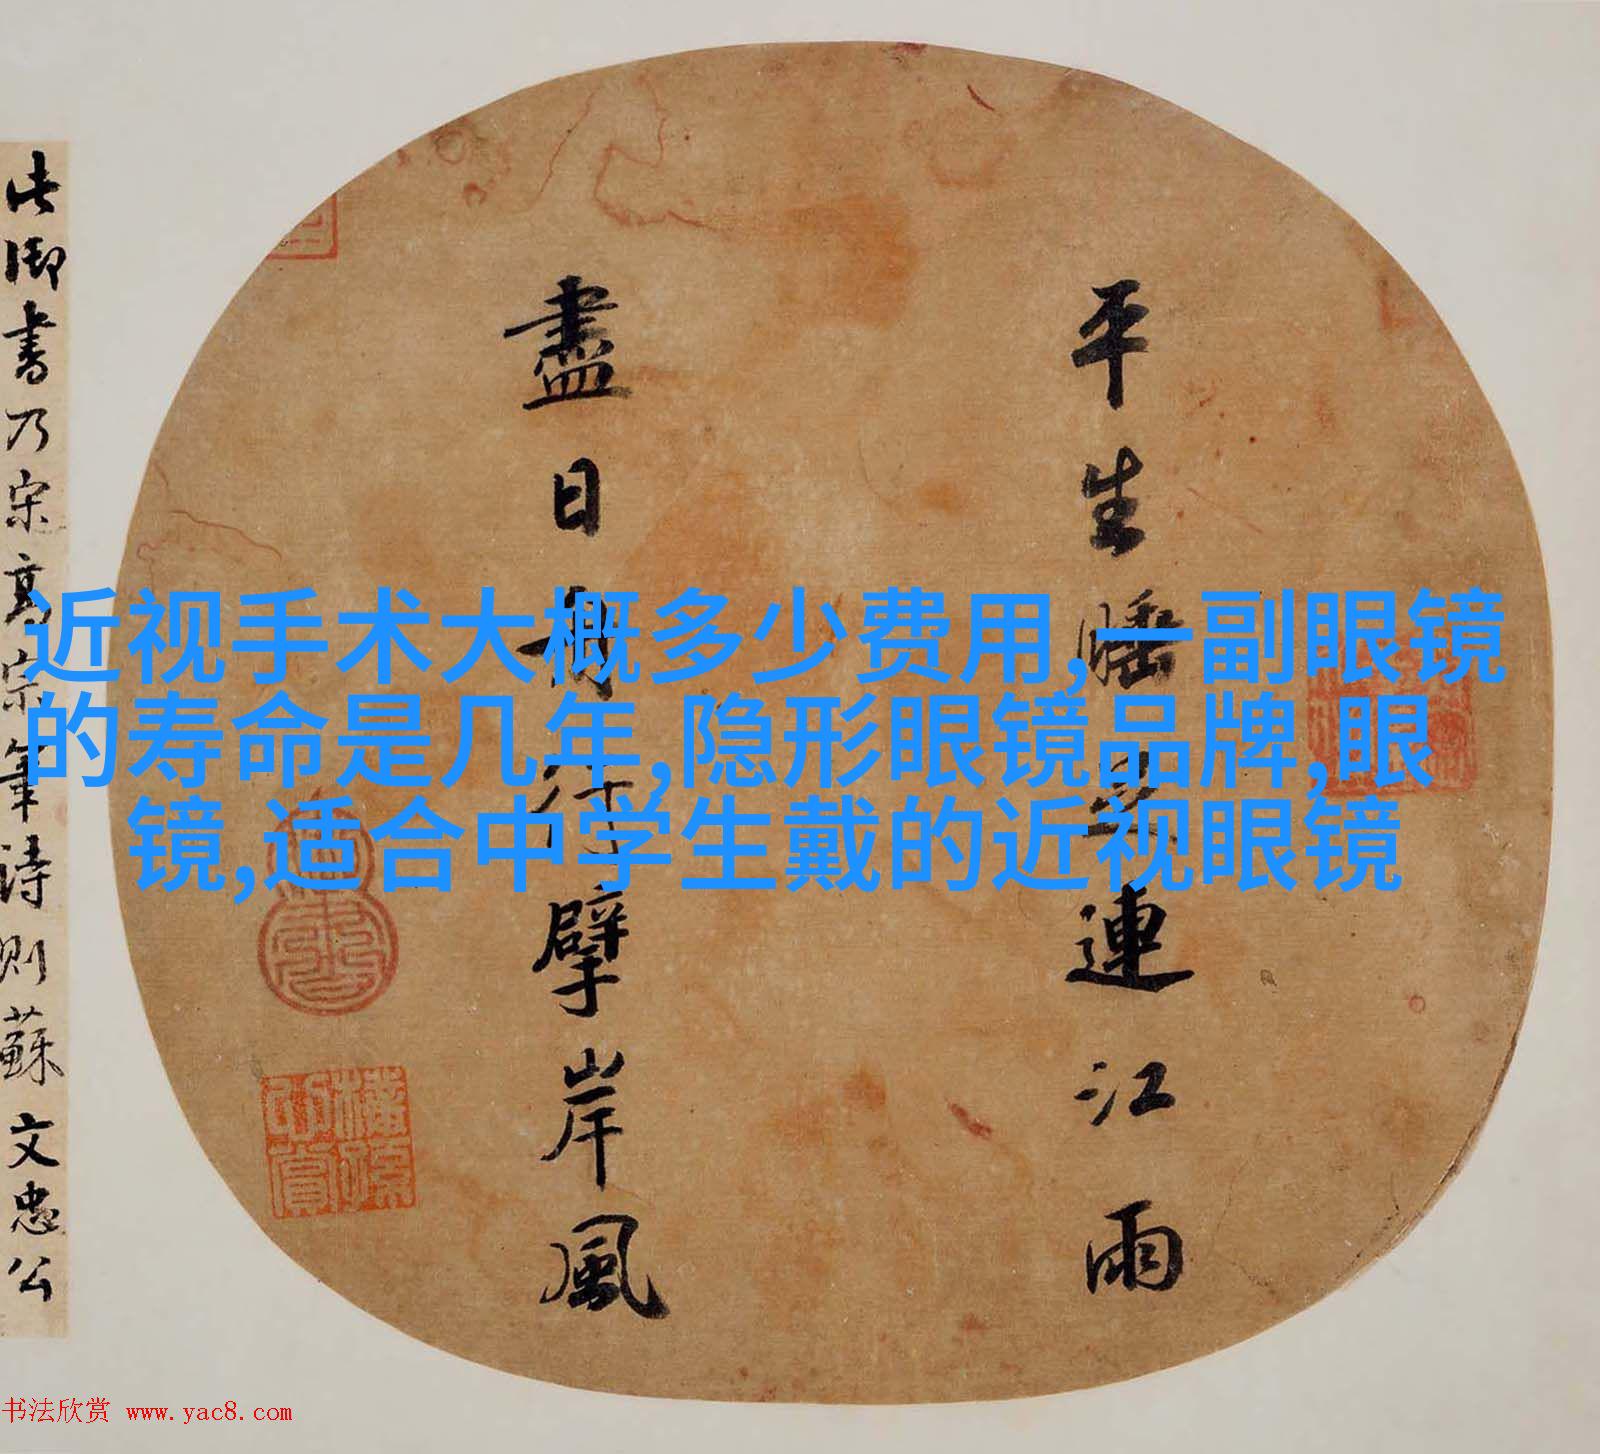 近视手术大概多少费用,一副眼镜
的寿命是几年,隐形眼镜品牌,眼
镜,适合中学生戴的近视眼镜
平生睡足連江雨
盡日舟橫擘岸風
此御書乃宋高宗筆詩則蘇文忠公
书法欣赏 www.yac8.com